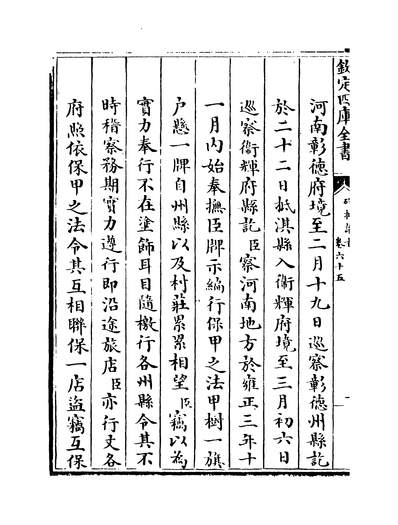 欽定四庫全書
卷六十五
河南彰德府境至二月十九日巡察彰德州縣訖
於二十二日抵淇縣入衛輝府境至三月初六日
巡察衛輝府縣訖臣察河南地方於雍正三年十
一月內始奉撫臣牌示編行保甲之法甲樹一旗
户懸一牌自州縣以及村莊累累相望臣竊以為
實力奉行不在塗飾耳目隨檄行各州縣令其不
時稽察務期實力遵行即沿途旅店臣亦行文各
府照依保甲之法令其互相聯保一店盜竊互保